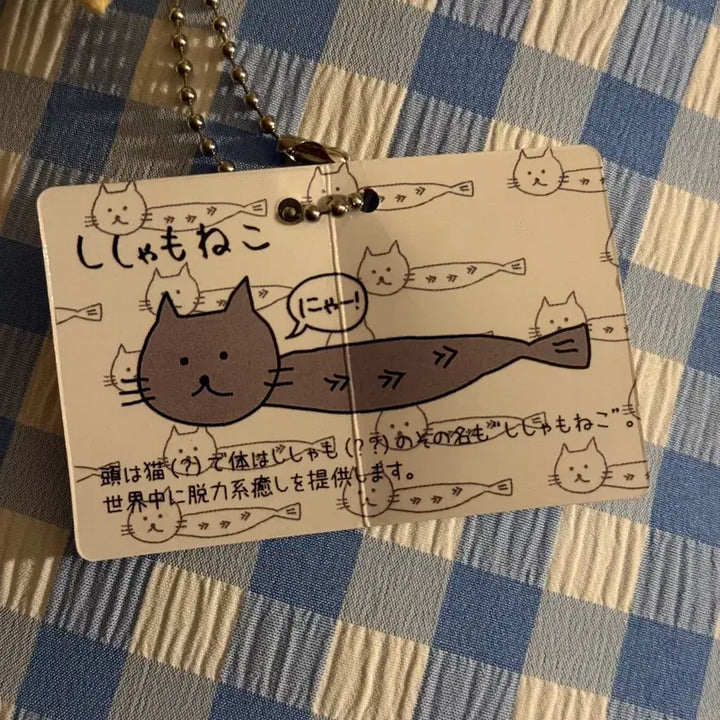 ししゃもねこ
にゃー!
頭は猫(?)で体はししゃも(??)のその名も"ししゃもねこ"。
世界中に脱力系癒しを提供します。